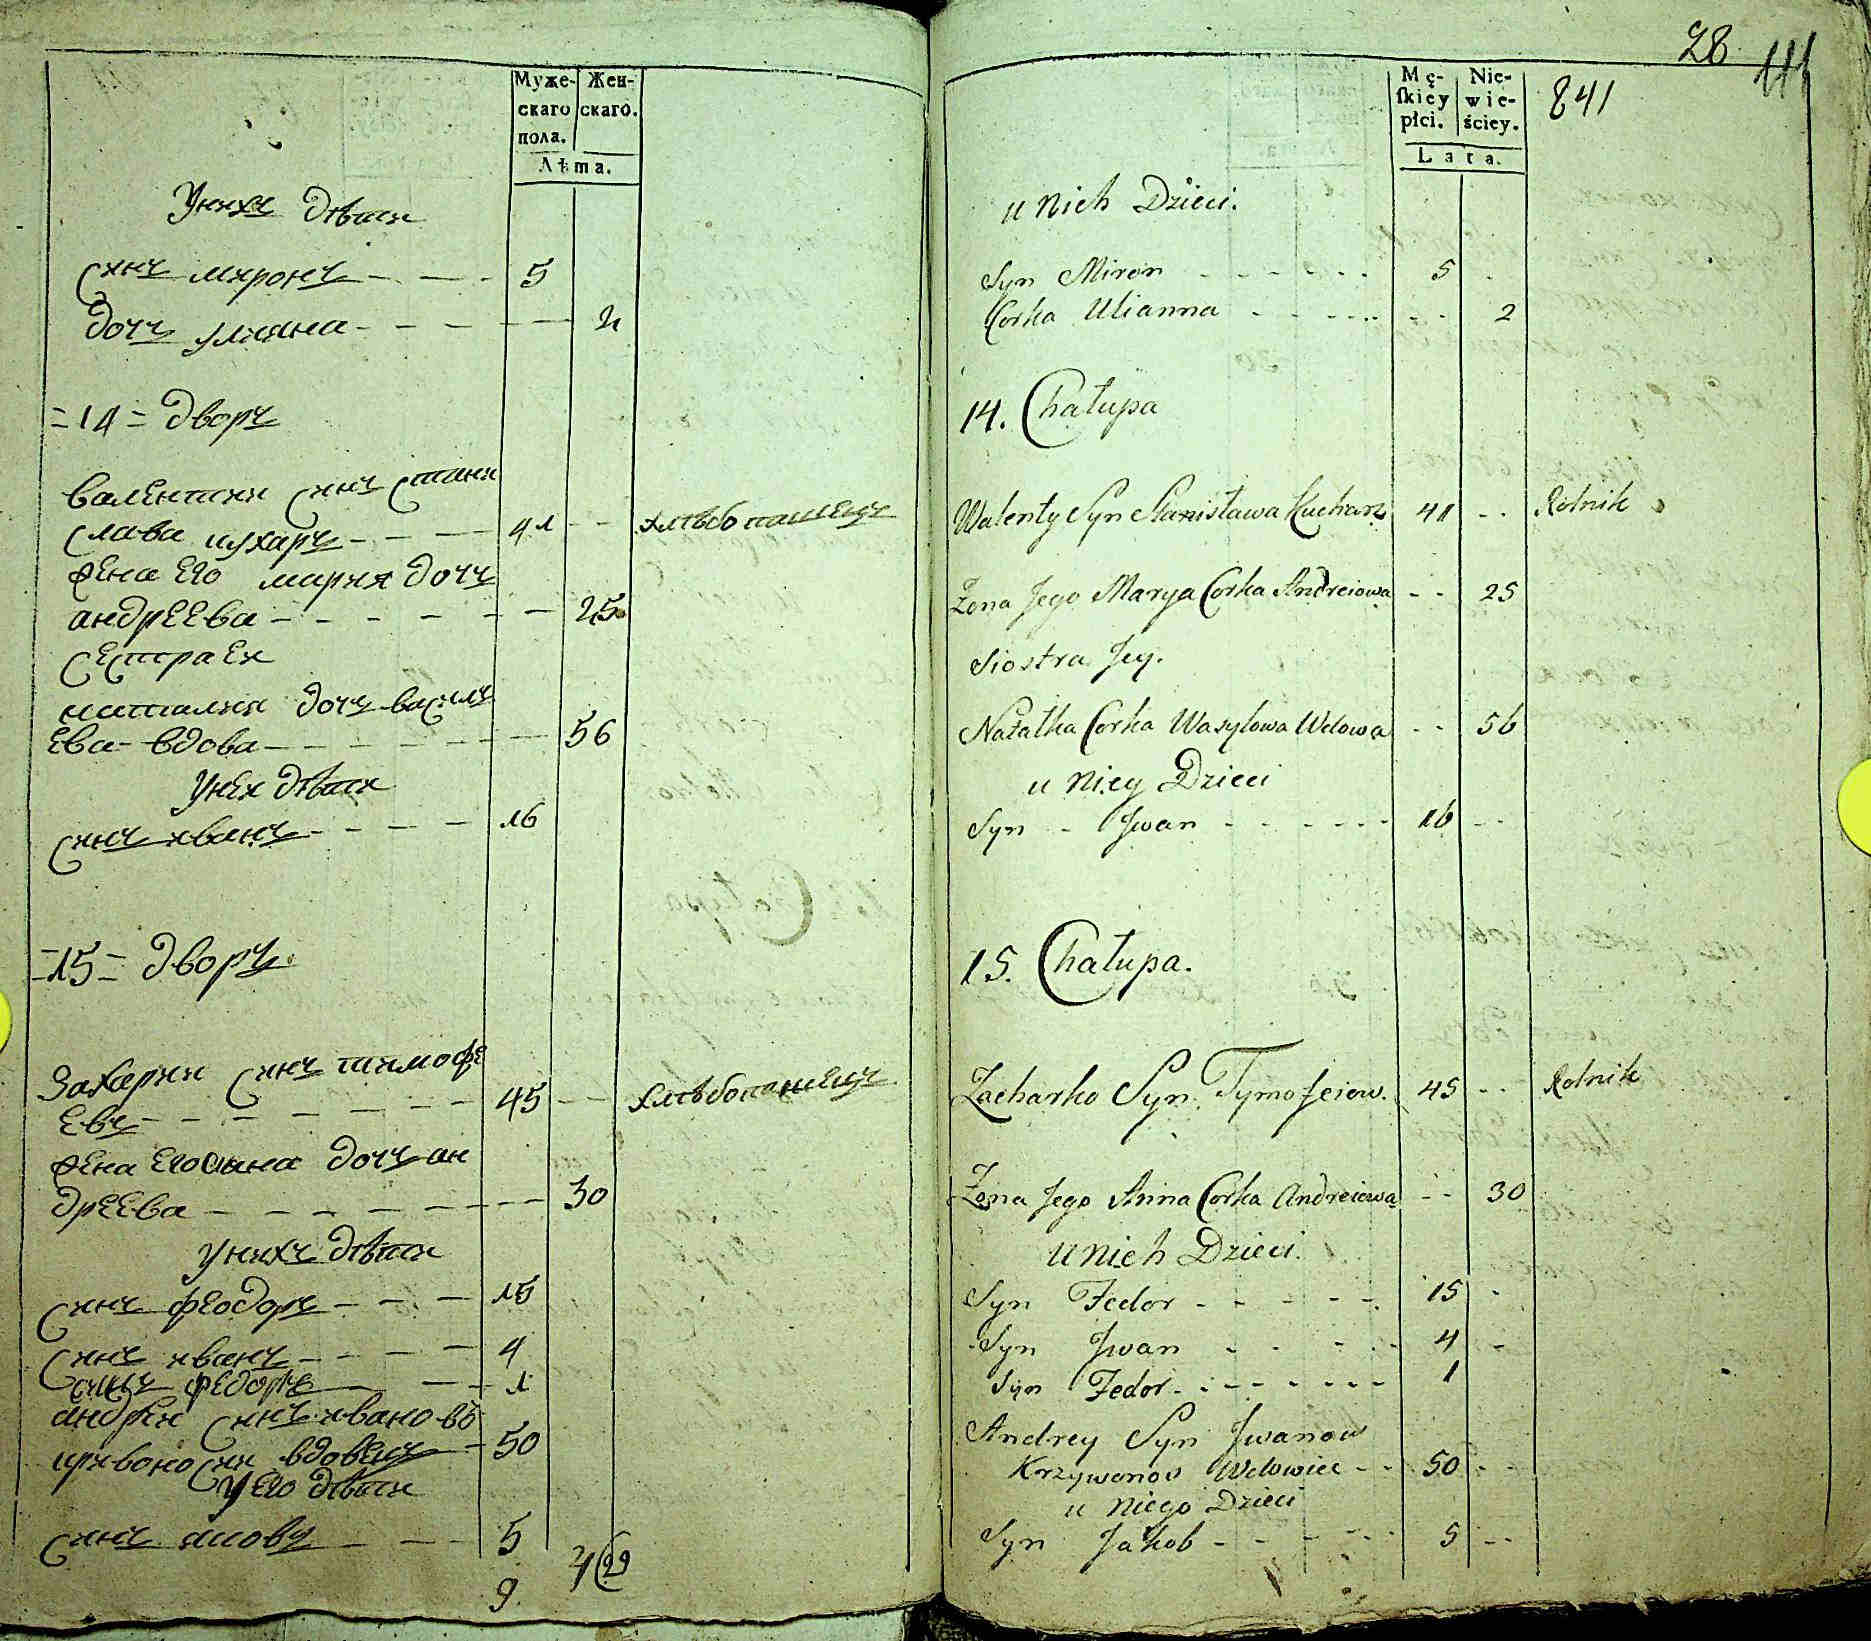 Муже- Жен-
скаго скаго.
пола.
Лѣта.
Унихъ дѣти
Синъ миронъ - - - 5
дочъ улияна - - - - - 2
=14= дворъ
валентии синъ стани
слава кухаръ - - - 41 - - хлѣбопашецъ
жена его мария дочъ
андреева - - - - - - 25
сестра ея
наталия дочъ василъ
ева вдова - - - - - - 56
унея дѣти
синъ иванъ - - - - 16
=15= дворъ
Захарии синъ тимофе
евъ - - - - - - - 45 - - хлѣбопашецъ
жена его анна дочъ ан
дреева - - - - - - - 30
унихъ дѣти
синъ феодоръ - - - 15
синъ иванъ - - - - 4
синъ федоръ - - 1
андрѣи синъ ивановъ
кривоносии вдовецъ - 50
у его дѣти
синъ яковъ - - - 5
9 4 29
28 111
Mę- Nie-
skiey wie- 841
płci. ściey.
Lata.
u nich Dzieci.
Syn Miron - - - - - - 5 -
Corka Ulianna - - - - - - - - 2
14. Chałupa
Walenty Syn Stanisława Kucharz 41 - - Rolnik
Żona Jego Marya Corka Andreiowa - - 25
Siostra Jey.
Natalka Corka Wasylowa Wdowa - - 56
u niey Dzieci
Syn - Jwan - - - - - - 16 - -
15. Chałupa.
Zacharko Syn Tymofeiow. 45 - - Rolnik
Żona Jego Anna Corka Andreiewa - - 30
u nich Dzieci.
Syn Fedor - - - - - 15 -
Syn Jwan - - - - 4 -
Syn Fedor - - - - - - - 1
Andrey Syn Jwanow
Krzywonos Wdowiec - - 50 - -
u niego Dzieci
Syn Jakob - - - - - 5 - -